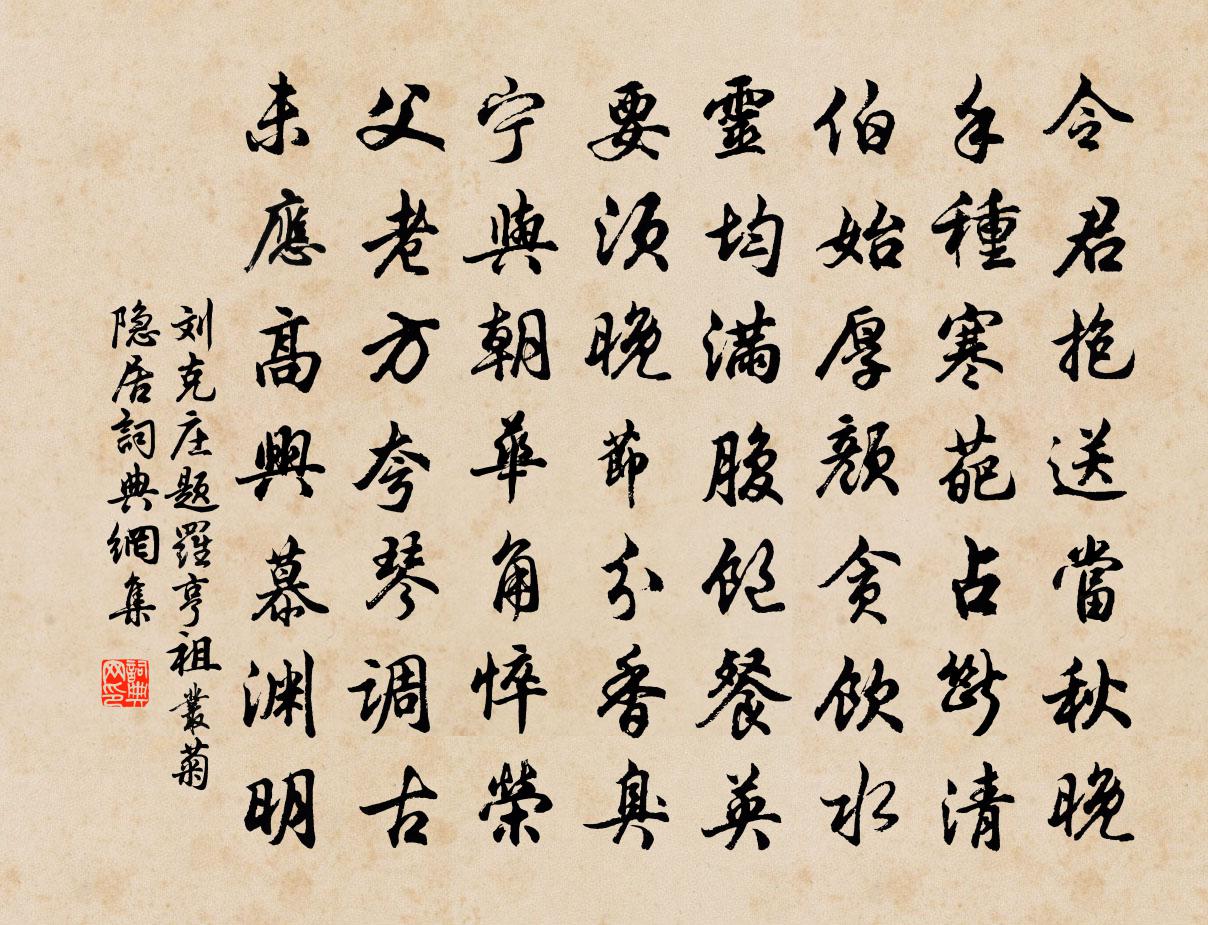 令君抱送當秋晚
手種寒葩占斷清
伯始厚顏貪飲水
靈均滿腹飽餐英
要須晚節分香臭
宁與朝華角悴榮
父老方夸琴调古
未應高興慕渊明
刘克庄题羅亨祖叢菊
隐居詞典網集
詞典网印